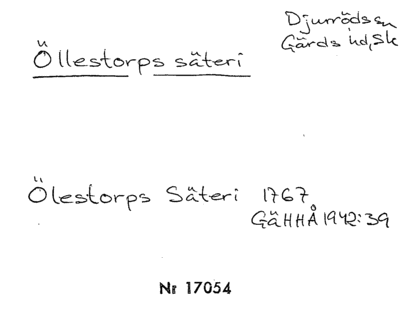 Djurröds sn
Gärds hd, Sk
Öllestorps säteri
Ölestorps Säteri 1767
GäHHÅ 1942:39
Nr 17054